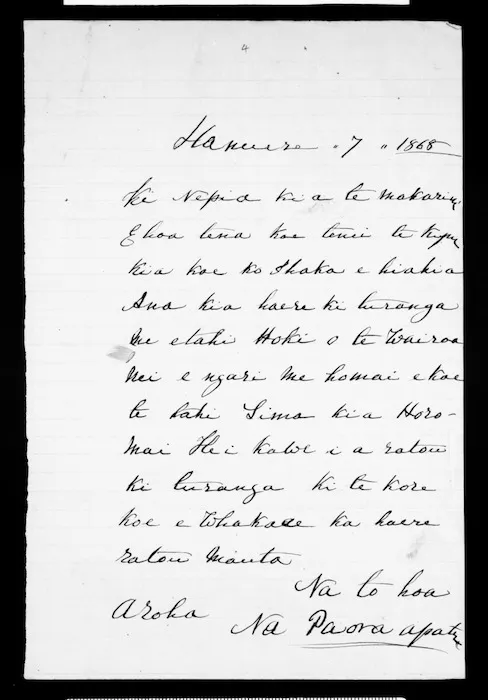 4
Hanuere " 7 " 1868
Ki Nepia ki a te Makarini
E hoa tena koe tenei te kupu
kia koe ko Ihaka e hiahia
Ana kia haere ki turanga
me etahi Hoki o te Wairoa
nei e ngari me homai e koe
te tahi Tima kia Horo-
mai Hei kawe i a ratou
ki turanga Ki te kore
koe e Whakaae ka haere
ratou Mauta
Na to hoa
Aroha
Na Paora apatu